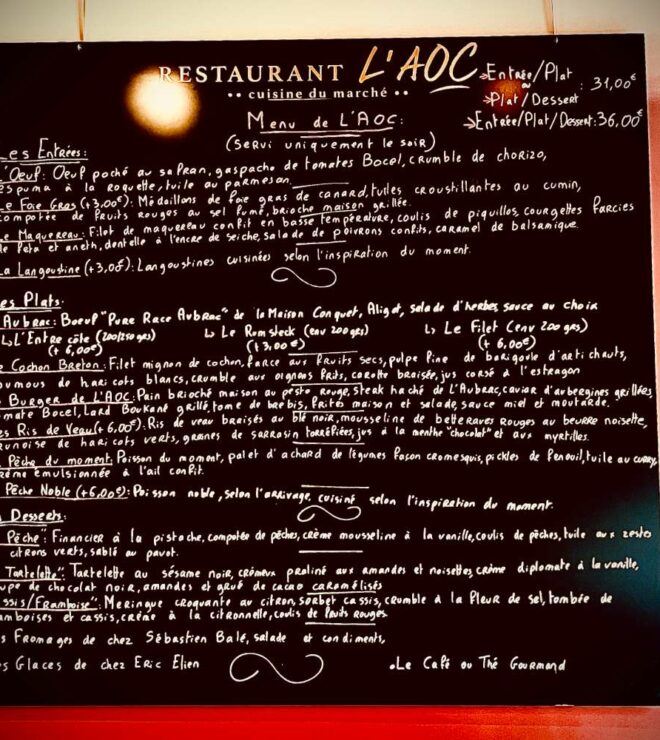 RESTAURANT L'AOC
•• cuisine du marché ••
Entrée/Plat
ou
Plat/Dessert
: 31,00€
Entrée/Plat/Dessert: 36,00€
Menu de L'Aoc:
(servi uniquement le soir)
Les Entrées:
L'Oeuf: Oeuf poché au safran, gaspacho de tomates Bocel, crumble de chorizo,
espuma à la roquette, tuile au parmesan.
Le Foie Gras (+3,00€): Médaillons de foie gras de canard, tuiles croustillantes au cumin,
compotée de fruits rouges au sel fumé, brioche maison grillée.
Le Maquereau: Filet de maquereau confit en basse température, coulis de piquillos, courgettes farcies
de feta et aneth, dentelle à l'encre de seiche, salade de poivrons confits, caramel de balsamique.
La Langoustine (+3,00€): Langoustines cuisinées selon l'inspiration du moment.
es Plats:
Aubrac: Boeuf "Pure Race Aubrac" de la Maison Conquet, Aligot, salade d'herbes, sauce au choix
↳ L'Entre côte (200/250 grs) ↳ Le Romsteck (env 200 grs) ↳ Le Filet (env 200 grs)
(+ 6,00€) (+ 3,00€) (+ 6,00€)
e Cochon Breton: Filet mignon de cochon, farce aux fruits secs, pulpe fine de barigoule d'artichauts,
oumous de haricots blancs, crumble aux oignons frits, carotte braisée, jus corsé à l'estragon
Burger de L'AOC: Pain brioché maison au pesto rouge, steak haché de L'Aubrac, caviar d'aubergines grillées,
omate Bocel, Lard Boukané grillé, tome de brebis, frites maison et salade, sauce miel et moutarde.
es Ris de Veau (+6,00€): Ris de veau braisés au blé noir, mousseline de betteraves rouges au beurre noisette,
runoise de haricots verts, graines de sarrasin torréfiées, jus à la menthe "chocolat" et aux myrtilles.
Pêche du moment: Poisson du moment, palet d'achard de légumes façon cromesquis, pickles de fenouil, tuile au curry,
rème émulsionnée à l'ail confit.
Pêche Noble (+6,00€): Poisson noble, selon l'arrivage, cuisiné selon l'inspiration du moment.
Desserts:
Pêche": Financier à la pistache, compotée de pêches, crème mousseline à la vanille, coulis de pêches, tuile aux zestes
citrons verts, sablé au pavot.
Tartelette": Tartelette au sésame noir, crémeux praliné aux amandes et noisettes, crème diplomate à la vanille,
upe de chocolat noir, amandes et grué de cacao caramélisés
ssis/Framboise": Meringue croquante au citron, sorbet cassis, crumble à la fleur de sel, tombée de
amboises et cassis, crème à la citronnelle, coulis de fruits rouges.
s Fromages de chez Sébastien Balé, salade et condiments,
es Glaces de chez Eric Elien
• Le Café ou Thé Gourmand